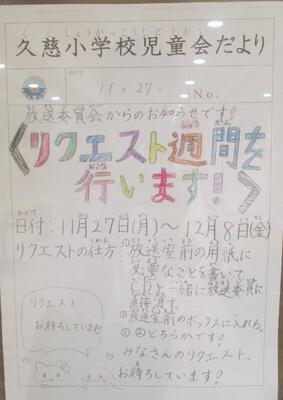 くじしょうがっこうじどうかい
久慈小学校児童会だより
11月27日 No.
放送委員会からのお知らせです!
〈リクエスト週間を
行います!〉
日付:11月27日(月)~12月8日(金)
リクエストの仕方:①放送室前の用紙に
必要なことを書いて
CDと一緒に放送委員に
直接渡す。
②放送室前のボックスに入れる。
①、②どちらかです。
みなさんのリクエスト、
お待ちしています!
リクエスト
お待ちしています!